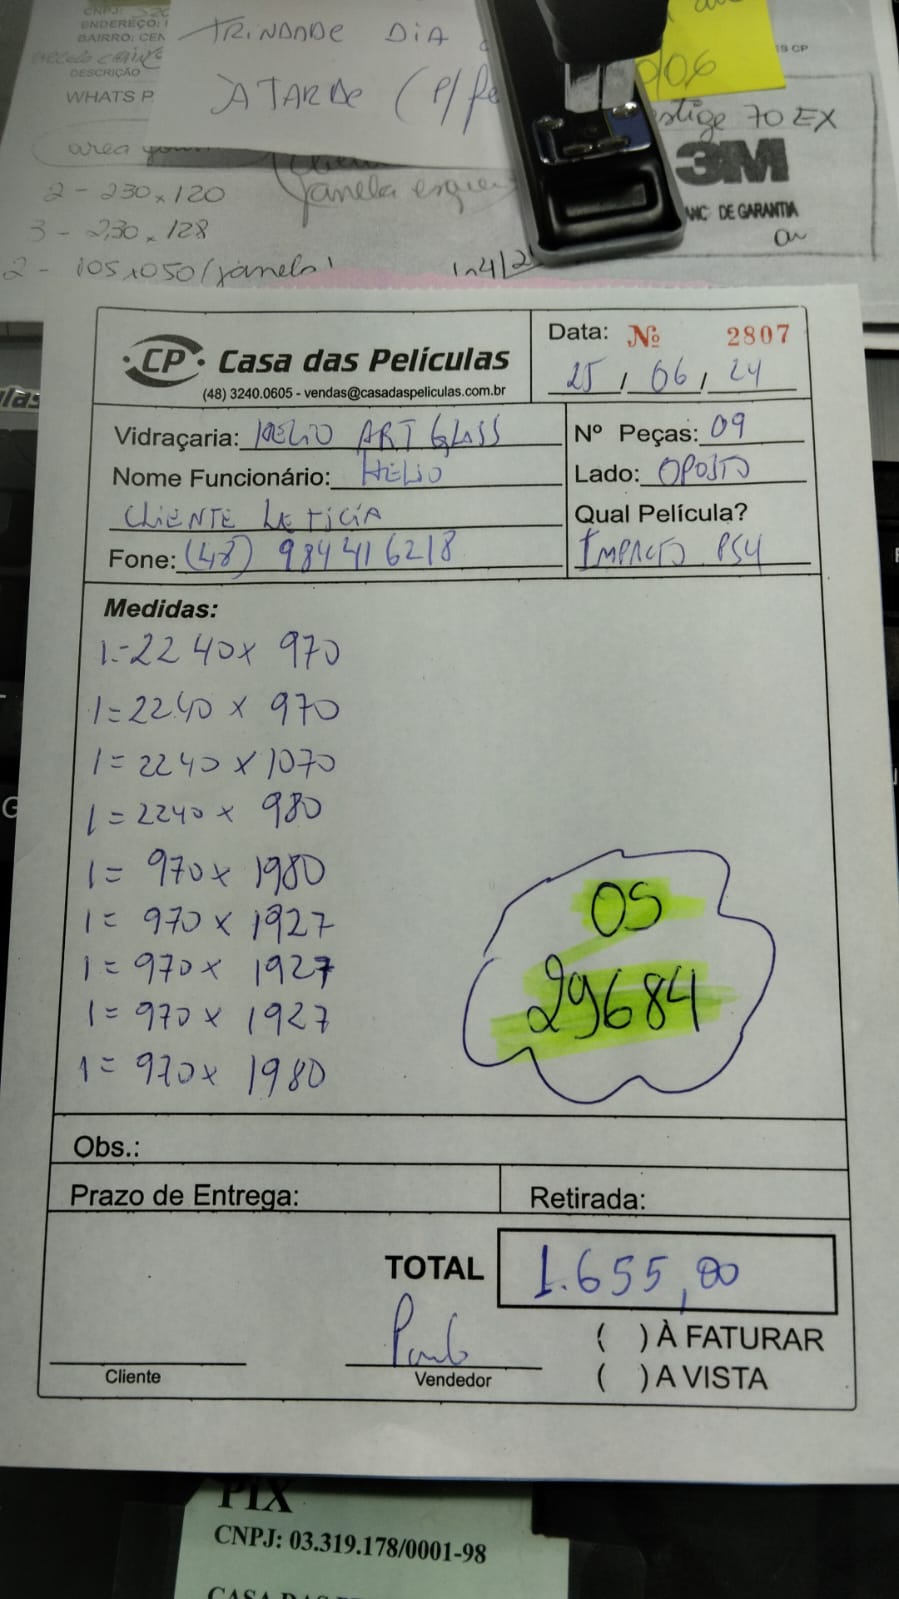 CNPJ:
ENDEREÇO:
BAIRRO: CEN
DESCRIÇÃO
WHATS P
TRINDADE DIA
A TARDE (P/
area
janela esque
2 - 230 x 120
3 - 2,30 x 128
2 - 105x050 (janela)
70 EX
3M
DE GARANTIA
CP Casa das Películas
(48) 3240.0605 - vendas@casadaspeliculas.com.br
Data: Nº 2807
25 / 06 / 24
Vidraçaria: HELIO ART GLASS
Nº Peças: 09
Nome Funcionário: HELIO
Lado: OPOSTO
CLIENTE LETICIA
Qual Película?
Fone: (48) 984416218
IMPACTO PS4
Medidas:
1=2240x 970
1=2240 x 970
1=2240 x 1070
1=2240 x 980
1= 970x 1980
1= 970 x 1927
1=970x 1927
1=970x 1927
1= 970x 1980
OS
29684
Obs.:
Prazo de Entrega:
Retirada:
TOTAL 1.655,00
( ) À FATURAR
( ) A VISTA
Cliente
Vendedor
PIX
CNPJ: 03.319.178/0001-98